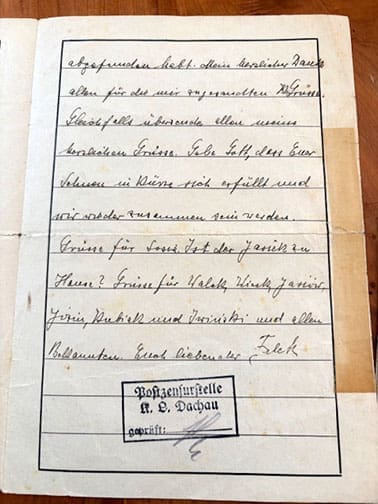 abgefunden habt. Mein herzlicher Dank
allen für die mir zugesandten Grüsse.
Gleichfalls übersende allen meine
herzlichen Grüsse. Gebe Gott, dass Euer
Sehnen in Kürze sich erfüllt und
wir wieder zusammen sein werden.
Grüsse für Ist der Jasiek zu
Hause? Grüsse für
und Iwinski und allen
Bekannten. Euch liebender Felek
Postzensurstelle
K. L. Dachau
geprüft: